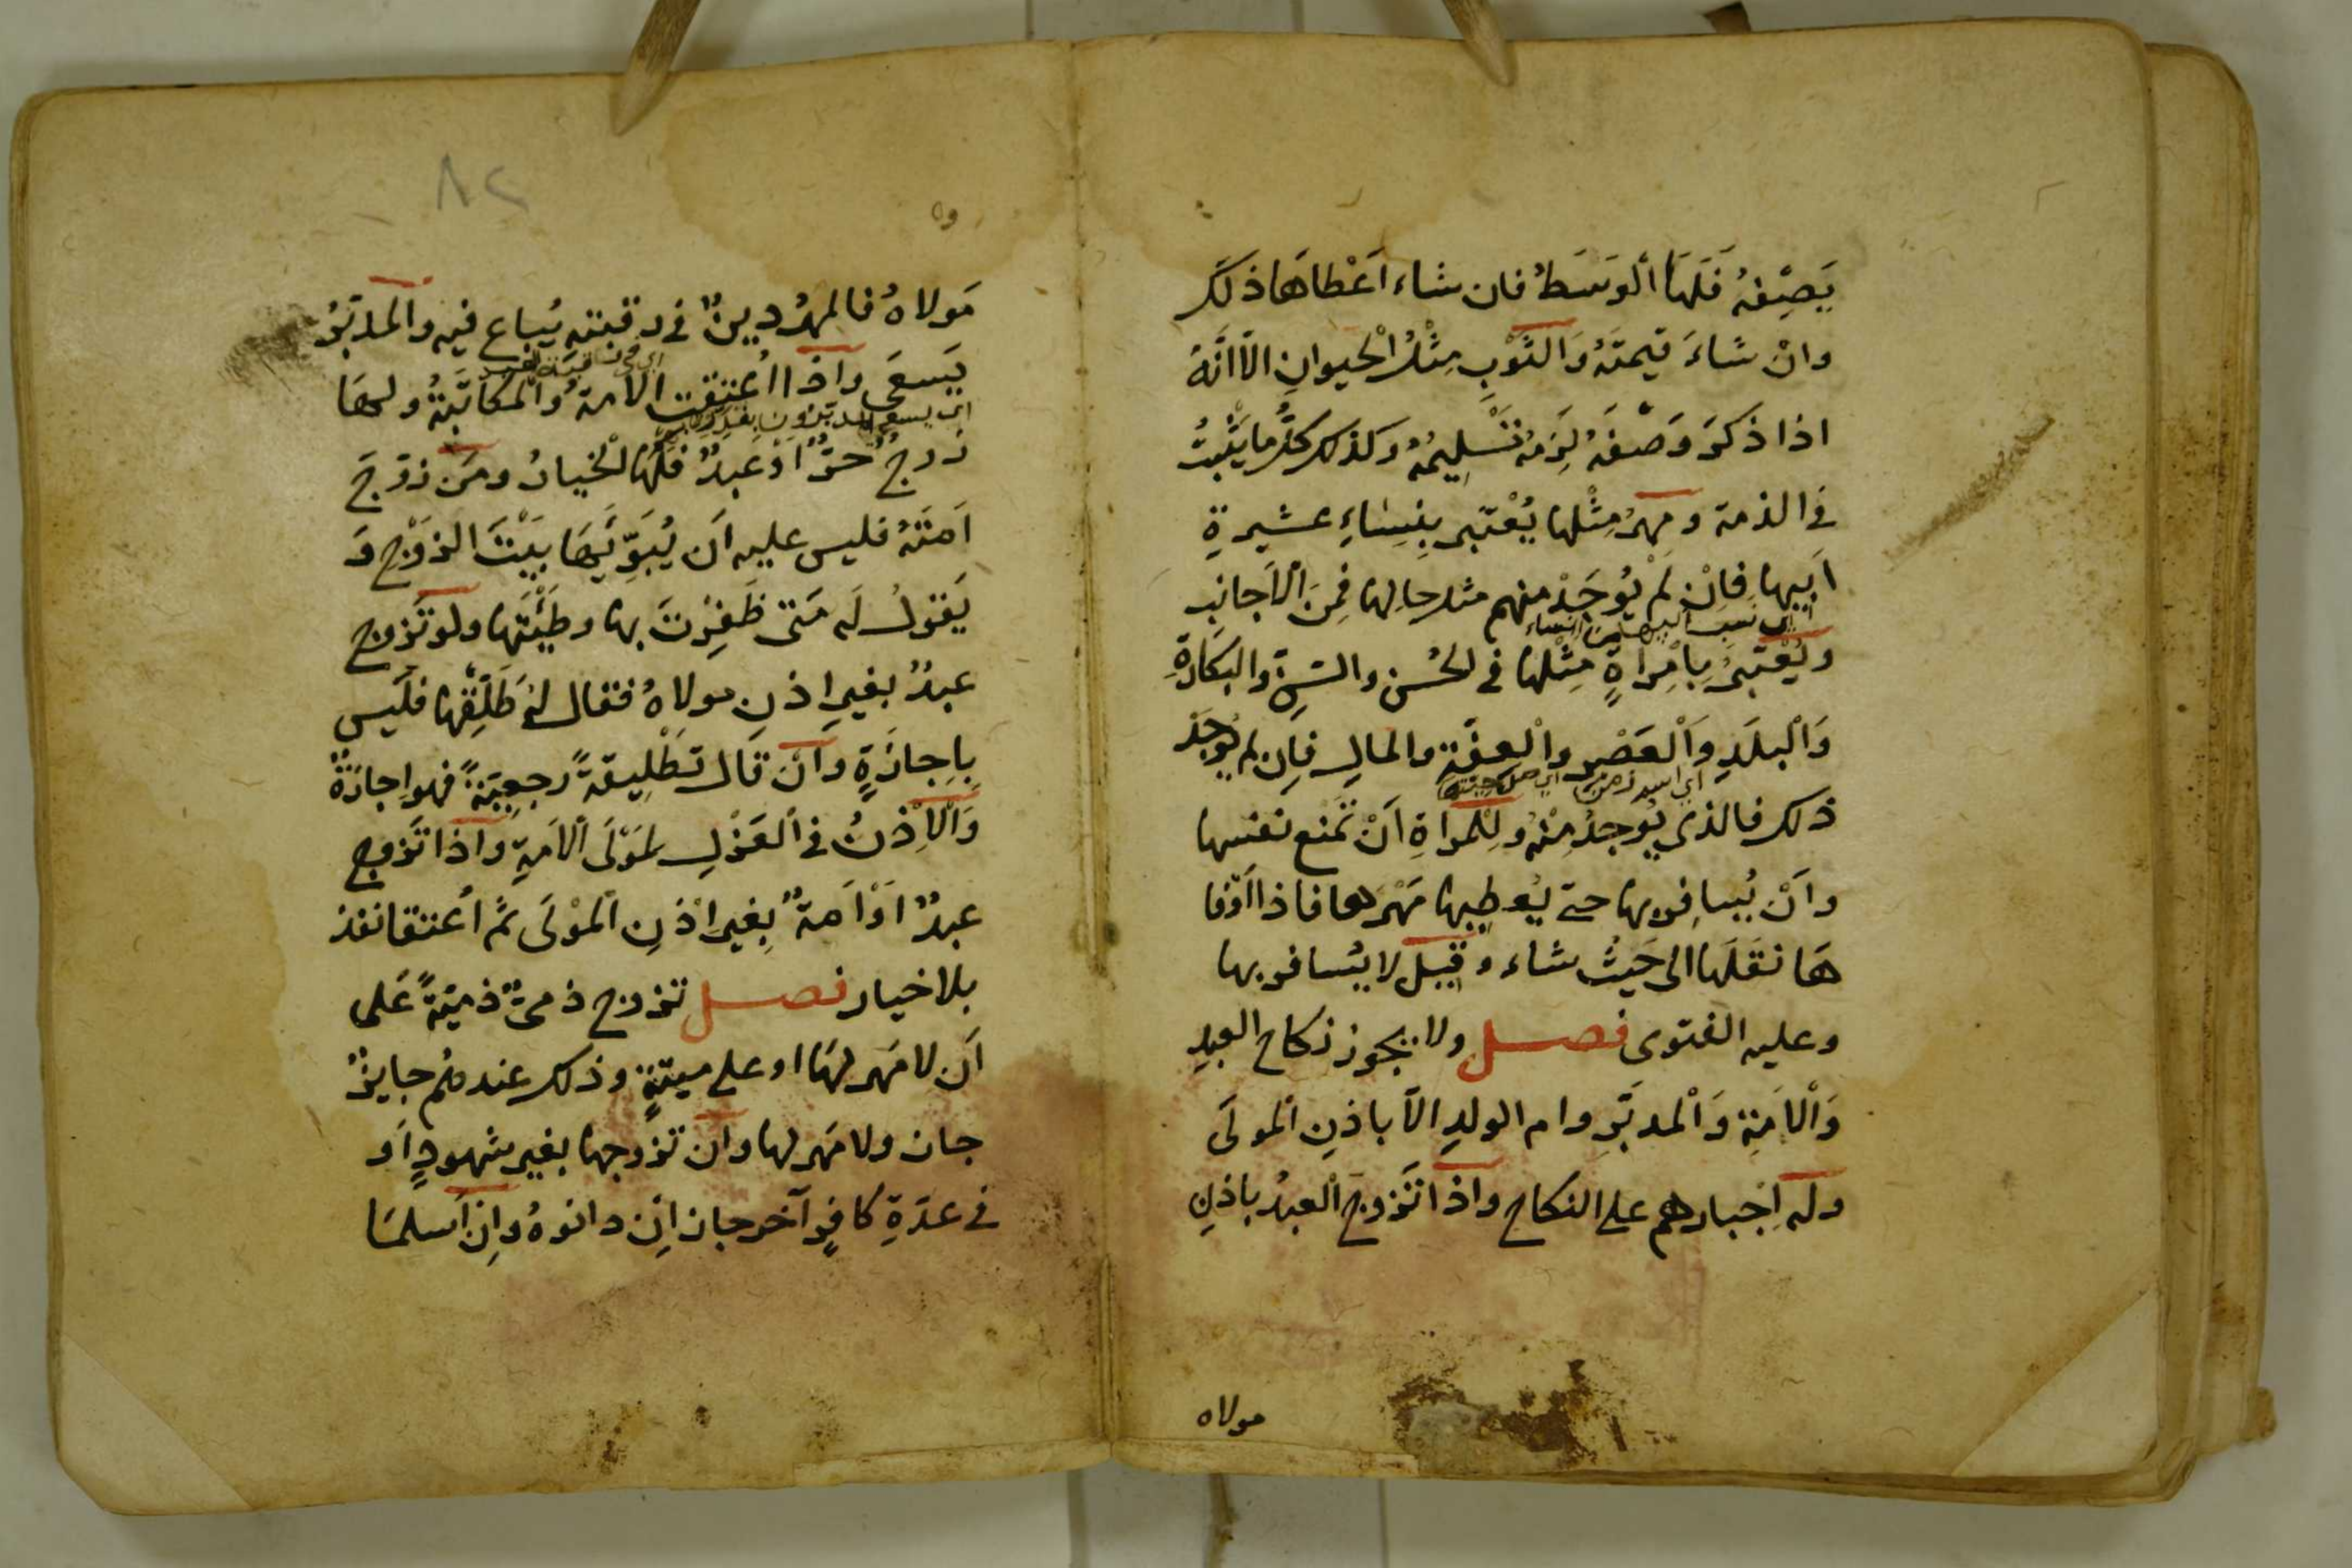 يَصِفْهُ فَلَهَا الْوَسَطُ فان شاء اَعْطاهَا ذلكَ
وانْ شاءَ قيمتَهُ وَالثَوْبِ مِثْلُ الْحيوانِ الّا انَّهُ
اذا ذكرَ وَصْفَهُ لَزِمَهُ تَسْلِيمُهُ وكذلك كلُّ ما يَثْبتُ
في الذمة ومهرُ مِثْلها يُعْتبر بِنِسَاءِ عشيرةِ
اَبيها فاِنْ لمْ يُوجَدْ منهم مثل حالها فمِنَ الْاَجانِب
ويُعْتبرُ بِامْرأةٍ مِثْلها في الحُسْن والسّنِ وَالبكَارةِ
وَالْبلَدِ وَالْعَصْرِ والْعفّةِ والمَالِ فاِن لم يُوجَدْ
ذلك فالذى يُوجدُ مِنْهُ ولِلْمراةِ اَنْ تَمْنع نفسها
واَنْ يُسافر بها حتى يُعطِيها مَهْرَها فاذا اَوْفا
هَا نقَلَها الى حَيثُ شاء وقيل لا يُسافر بها
وعليه الفتوى فصل ولا يجوز نكاح العبدِ
وَالْاَمَةِ وَالْمدبَّرِ وام الولدِ الّا باذنِ المولَى
وله اِجْبارهم على النكاح واذا تَزوجَ الْعبدُ باذنِ
مولاه
٨٢
مَولاهُ فالمهرُ دينٌ في رقبته يُباع فيه والمدبَّرُ
يَسعَى واذا اُعتقت الامةُ وَالْمكاتَبةُ ولها
اي يسعى المدبر
زوجٌ حرٌّ اَوْ عبدٌ فلَها الْخيارُ ومَن زوّجَ
اَمتَهُ فليس عليه اَن يُبَوِّئَها بيْتَ الزوْجِ وَ
يَقولُ لَه مَتى ظَفِرْتَ بها وطِئْتَها ولو تَزوج
عبدٌ بغيرِ اِذنِ مولاهُ فقال له طَلِّقْها فلَيس
بِاِجازَةٍ واَنْ قال تطْلِيقةً رجعِيّةً فهو اِجازةٌ
وَالْاِذْنُ في الْعَزْلِ لِمَوْلَى الْامَةِ واذا تَزوج
عبدٌ اَوْ اَمةٌ بِغير اذنِ الْمَوْلَى ثمَّ اُعتقا نفذ
بلا خيار فصل تزوج ذمىٌّ ذميّةً عَلى
اَن لا مَهر لها او على ميتةٍ وذلك عندهُم جايزٌ
جاز ولا مَهر لها وان تزوجها بغير شهودٍ اَو
في عدّةِ كافرٍ آخر جاز اِنْ دانوهُ واِن اَسلمَا